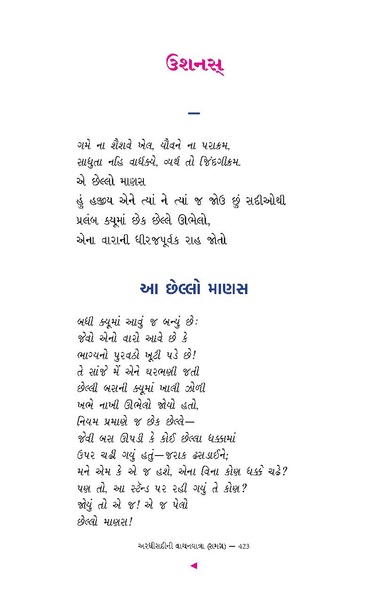 ઉશનસ્
—
ગમે ના શૈશવે ખેલ, યૌવને ના પરાક્રમ,
સાધુતા નહિ વાર્ધક્યે, વ્યર્થ તો જિંદગીક્રમ.
એ છેલ્લો માણસ
હું હજીય એને ત્યાં ને ત્યાં જ જોઉં છું સદીઓથી
પ્રલંબ ક્યૂમાં છેક છેલ્લે ઊભેલો,
એના વારાની ધીરજપૂર્વક રાહ જોતો
આ છેલ્લો માણસ
બધી ક્યૂમાં આવું જ બન્યું છેઃ
જેવો એનો વારો આવે છે કે
ભાગ્યનો પુરવઠો ખૂટી પડે છે!
તે સાંજે મેં એને ઘરભણી જતી
છેલ્લી બસની ક્યૂમાં ખાલી ઝોળી
ખભે નાખી ઊભેલો જોયો હતો,
નિયમ પ્રમાણે જ છેક છેલ્લે—
જેવી બસ ઊપડી કે કોઈ છેલ્લા ધક્કામાં
ઉપર ચઢી ગયું હતું—જરાક ઢસડાઈને;
મને એમ કે એ જ હશે, એના વિના કોણ ધક્કે ચઢે?
પણ તો, આ સ્ટૅન્ડ પર રહી ગયું તે કોણ?
જોયું તો એ જ! એ જ પેલો
છેલ્લો માણસ!
અરધીસદીની વાચનયાત્રા (સમગ્ર) — 423
◀